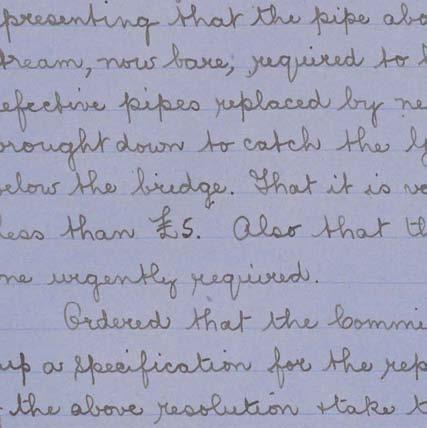 presenting that the pipe abo
tream, now bare, required to b
efective pipes replaced by ne
rought down to catch the
below the bridge. That it is
less than £5. Also that th
ne urgently required.
Ordered that the Commi
up a specification for the rep
the above resolution & take t